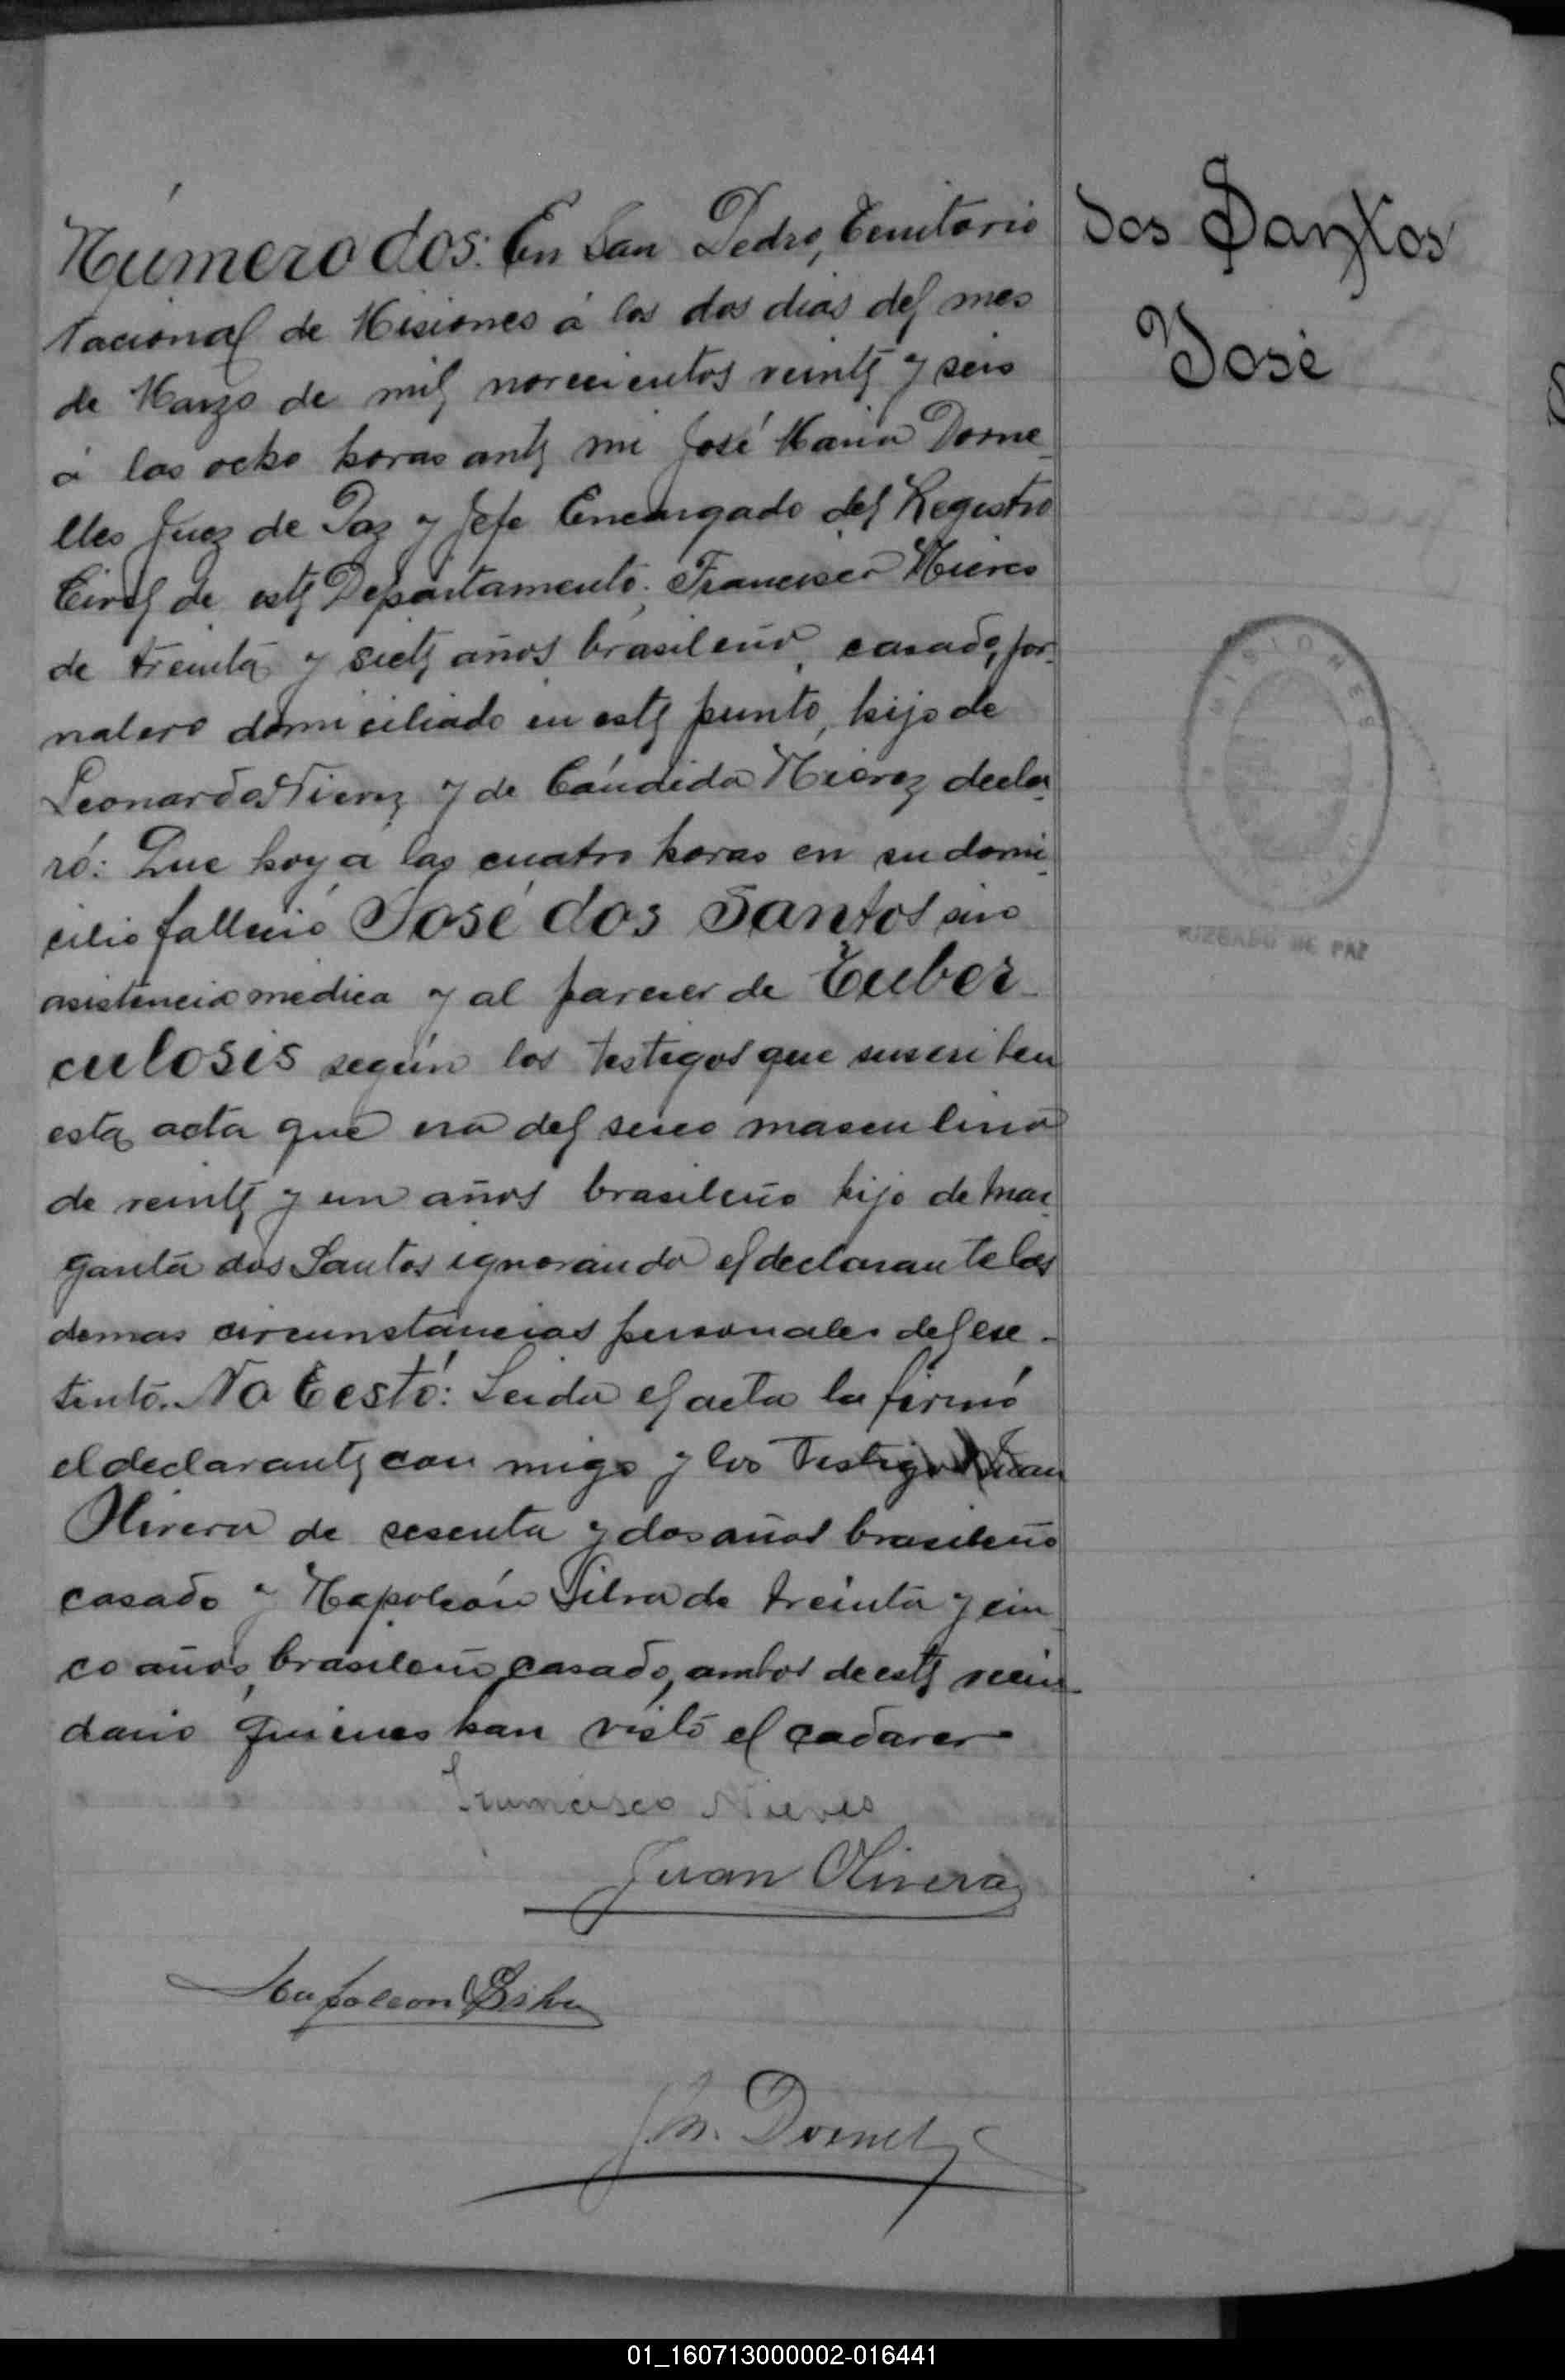 Número dos: En San Pedro, Territorio
Nacional de Misiones á los dos dias del mes
de Marzo de mil novecientos veinte y seis
á las ocho horas ante mi José Maria Dorne
lles Juez de Paz y Jefe Encargado del Registro
Civil de este Departamento. Francisco Nieres
de treinta y siete años brasileño, casado, jor
nalero domiciliado en este punto, hijo de
Leonardo Nierez y de Cándida Nierez decla
ró: Que hoy a las cuatro horas en su domi
cilio falleció José dos Santos sin
asistencia medica y al parecer de Tuber
culosis según los testigos que suscriben
esta acta que era del sexo masculino
de veinte y un años brasileño hijo de Mar
garita dos Santos ignorando el declarante las
demas circunstancias personales del ex-
tinto. No Testó: Leida el acta la firmó
el declarante con migo y los testigos Juan
Olivera de sesenta y dos años brasileño
casado y Napoleón Silva de treinta y cin
co años, brasileño casado, ambos de este vecin
dario quienes han visto el cadaver
Francisco Nieves
Juan Olivera
Napoleon Silva
J. M. Dornelles
dos Santos
José
MISIONES
JUZGADO DE PAZ
01_160713000002-016441